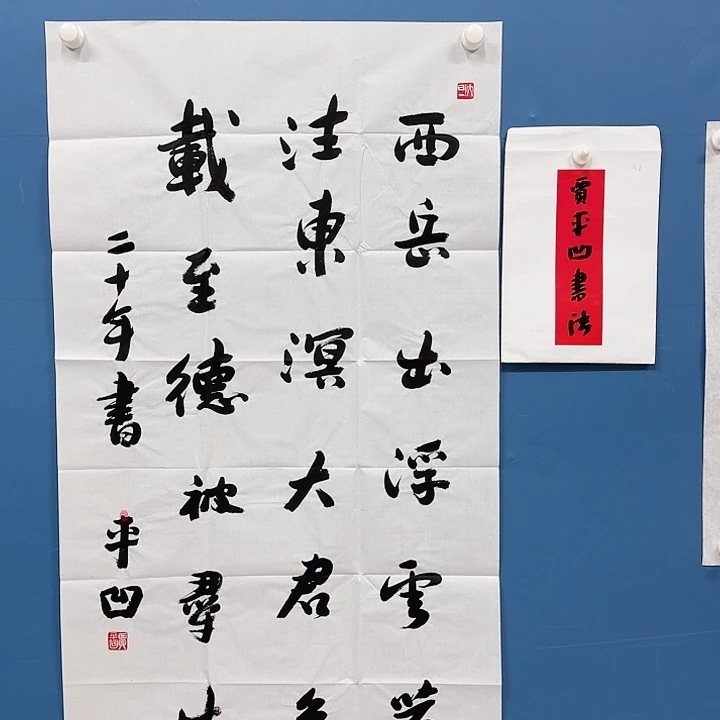 西岳出浮雲
注東溟大君
載至德被羣
二十年書
平凹
賈平凹書法